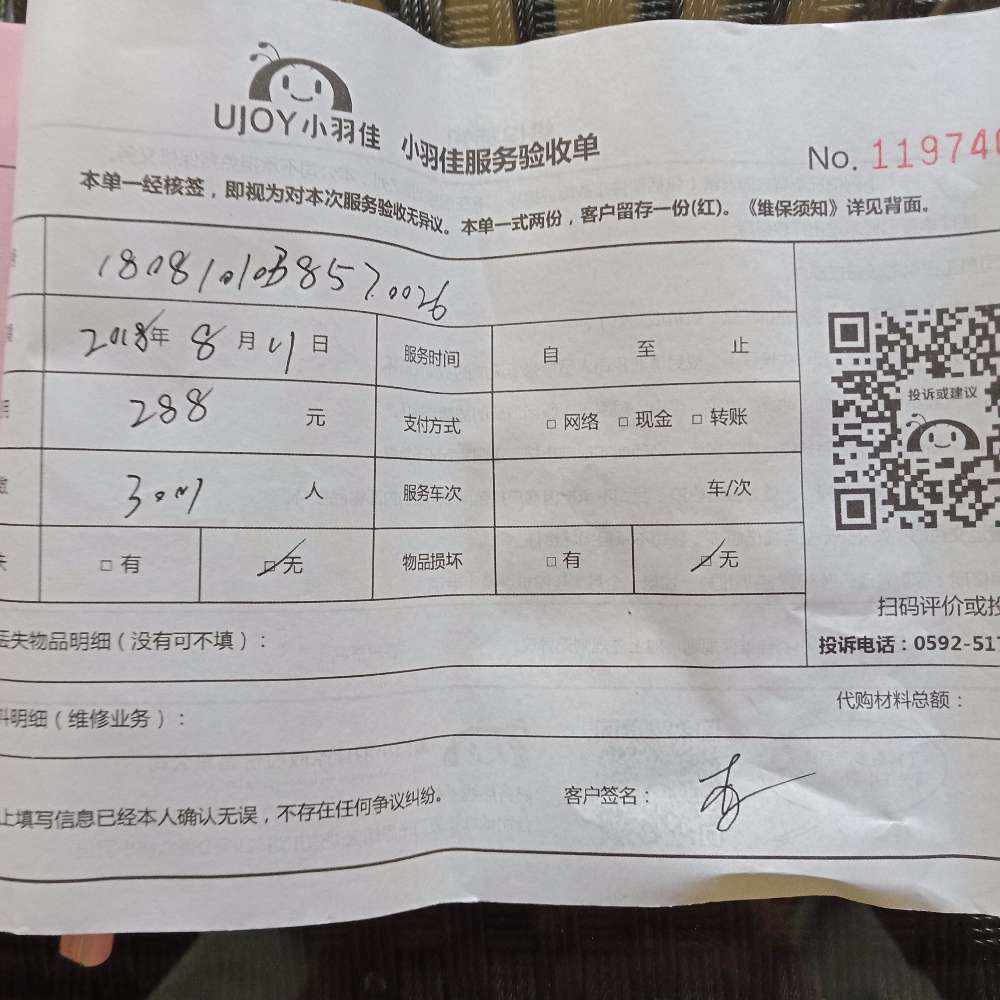 UJOY小羽佳 小羽佳服务验收单
No. 119740
本单一经核签，即视为对本次服务验收无异议。本单一式两份，客户留存一份(红)。《维保须知》详见背面。
2018年 8 月 日 服务时间 自 至 止
288 元 支付方式 □ 网络 □ 现金 □ 转账
人 服务车次 车/次
□ 有 □ 无 物品损坏 □ 有 □ 无
投诉或建议
扫码评价或投
丢失物品明细（没有可不填）：
投诉电话：0592-517
料明细（维修业务）：
代购材料总额：
上填写信息已经本人确认无误，不存在任何争议纠纷。
客户签名：